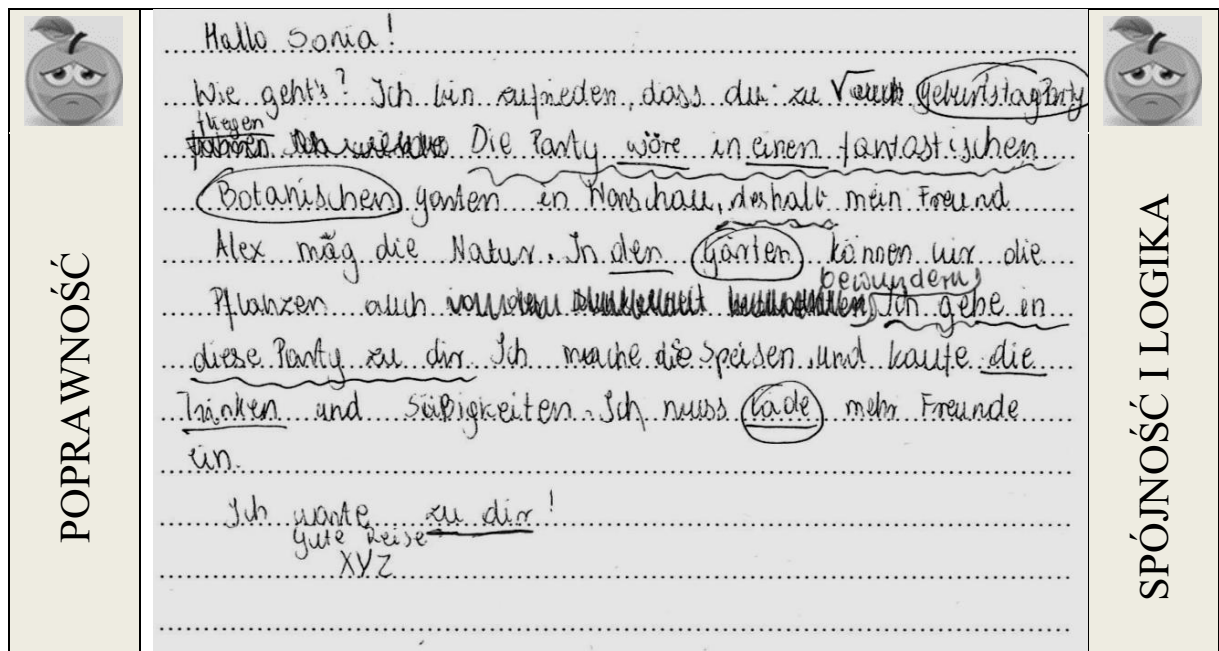 POPRAWNOŚĆ
Hallo Sonia!
Wie geht's? Ich bin zufrieden, dass du zu GeburtstagParty
fliegen
Die Party wöre in einen fantastischen
Botanischen garten in Warschau, deshalb mein Freund
Alex mäg die Natur. In den Gärten können wir die
bewundern
Pflanzen auch Ich gehe in
diese Party zu dir. Ich mache die Speisen und kaufe die
Tränken und Süßigkeiten. Ich muss lade mehr Freunde
ein.
Ich warte zu dir!
Gute Reise
XYZ
SPÓJNOŚĆ I LOGIKA